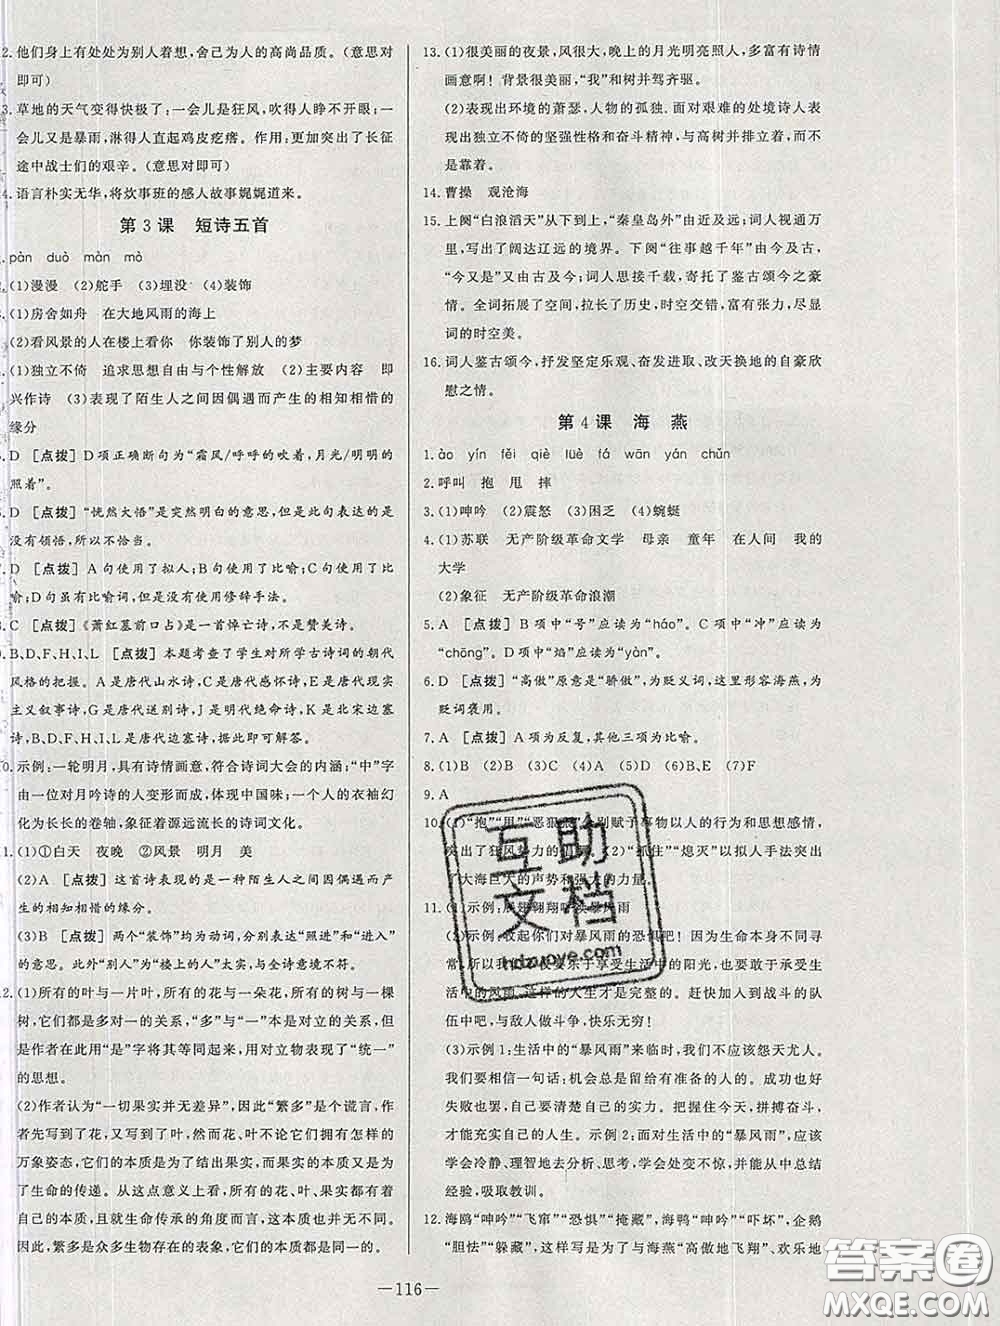 2. 他们身上有处处为别人着想,舍己为人的高尚品质。(意思对
即可)
3. 草地的天气变得快极了;一会儿是狂风,吹得人睁不开眼;一
会儿又是暴雨,淋得人直起鸡皮疙瘩。作用:更加突出了长征
途中战士们的艰辛。(意思对即可)
4. 语言朴实无华,将炊事班的感人故事娓娓道来。
第3课 短诗五首
pàn duò màn mò
(1)漫漫 (2)舵手 (3)埋没 (4)装饰
(1)房舍如舟 在大地风雨的海上
(2)看风景的人在楼上看你 你装饰了别人的梦
(1)独立不倚 追求思想自由与个性解放 (2)主要内容 即
兴作诗 (3)表现了陌生人之间因偶遇而产生的相知相惜的
缘分
D [点拨] D项正确断句为“霜风/呼呼的吹着,月光/明明的
照着”。
D [点拨] “恍然大悟”是突然明白的意思,但此句表达的是
没有领悟,所以不恰当。
D [点拨] A句使用了拟人;B句使用了比喻;C句使用了比
喻;D句虽有比喻词,但并没有使用修辞手法。
C [点拨]《萧红墓前口占》是一首悼亡诗,不是赞美诗。
B、D、F、H、I、L [点拨] 本题考查了学生对所学古诗词的朝代
风格的把握。A是唐代山水诗,C是唐代感怀诗,E是唐代现实
主义叙事诗,G是唐代送别诗,J是明代绝命诗,K是北宋边塞
诗,B、D、F、H、I、L是唐代边塞诗,据此即可解答。
0. 示例:一轮明月,具有诗情画意,符合诗词大会的内涵;“中”字
由一位对月吟诗的人变形而成,体现中国味;一个人的衣袖幻
化为长长的卷轴,象征着源远流长的诗词文化。
1. (1)①白天 夜晚 ②风景 明月 美
(2)A [点拨] 这首诗表现的是一种陌生人之间因偶遇而产
生的相知相惜的缘分。
(3)B [点拨] 两个“装饰”均为动词,分别表达“照进”和“进入”
的意思。此外“别人”为“楼上的人”太实,与全诗意境不符。
2. (1)所有的叶与一片叶,所有的花与一朵花,所有的树与一棵
树,它们都是多对一的关系,“多”与“一”本是对立的关系,但
是作者在此用“是”字将其等同起来,用对立物表现了“统一”
的思想。
(2)作者认为“一切果实并无差异”,因此“繁多”是个谎言,作
者先写到了花,又写到了叶,然而花、叶不论它们拥有怎样的
万象姿态,它们的本质是为了结出果实,而果实的本质是为
了生命的传递。从这点意义上看,所有的花、叶、果实都有着
自己的本质,且就生命传承的角度而言,这个本质并无不同。
因此,繁多是众多生物存在的表象,它们的本质都是同一的。
13. (1)很美丽的夜景,风很大,晚上的月光明亮照人,多富有诗情
画意啊!背景很美丽,“我”和树并驾齐驱。
(2)表现出环境的萧瑟、人物的孤独。面对艰难的处境诗人表
现出独立不倚的坚强性格和奋斗精神,与高树并排立着,而不
是靠着。
14. 曹操 观沧海
15. 上阕“白浪滔天”从下到上,“秦皇岛外”由近及远;词人视通万
里,写出了阔达辽远的境界。下阕“往事越千年”由今及古,
“今又是”又由古及今;词人思接千载,寄托了鉴古颂今之豪
情。全词拓展了空间,拉长了历史,时空交错,富有张力,尽显
词的时空美。
16. 词人鉴古颂今,抒发坚定乐观、奋发进取、改天换地的自豪欣
慰之情。
第4课 海 燕
1. ào yín fěi qiè luè fá wān yán chǔn
2. 呼叫 抱 甩 摔
3. (1)呻吟 (2)震怒 (3)困乏 (4)蜿蜒
4. (1)苏联 无产阶级革命文学 母亲 童年 在人间 我的
大学
(2)象征 无产阶级革命浪潮
5. A [点拨] B项中“号”应读为“háo”。C项中“冲”应读为
“chōng”。D项中“焰”应读为“yàn”。
6. D [点拨] “高傲”原意是“骄傲”,为贬义词,这里形容海燕,为
贬词褒用。
7. A [点拨] A项为反复,其他三项为比喻。
8. (1)B (2)B (3)C (4)A (5)D (6)B、E (7)F
9. A
10. (1)“抱”“甩”“恶狠狠”分别赋予事物以人的行为和思想感情,
突出了狂风势力的强大。(2)“抓住”“熄灭”以拟人手法突出了
大海巨大的声势和强大的力量。
11. (1)示例:展翅翱翔 暴风雨
(2)示例:收起你们对暴风雨的恐惧吧!因为生命本身不同寻
常,所以我们不仅要乐于享受生活中的阳光,也要敢于承受生
活中的风雨,这样的人生才是完整的。赶快加入到战斗的队
伍中吧,与敌人做斗争,快乐无穷!
(3)示例1:生活中的“暴风雨”来临时,我们不应该怨天尤人。
我们要相信一句话:机会总是留给有准备的人。成功也好
失败也罢,我们都要创造自己的实力。把握住今天,拼搏奋斗,
才能充实自己的人生。示例2:面对生活中的“暴风雨”,应该
学会冷静、理智地去分析、思考,学会处变不惊,并能从中总结
经验,吸取教训。
12. 海鸥“呻吟”“飞窜”“恐惧”“掩藏”,海鸭“呻吟”“吓坏”,企鹅
“胆怯”“躲藏”,这样写是为了与海燕“高傲地飞翔”、欢乐地
—116—
互助
文档
hdzuoye.com
答案圈
MXQE.COM